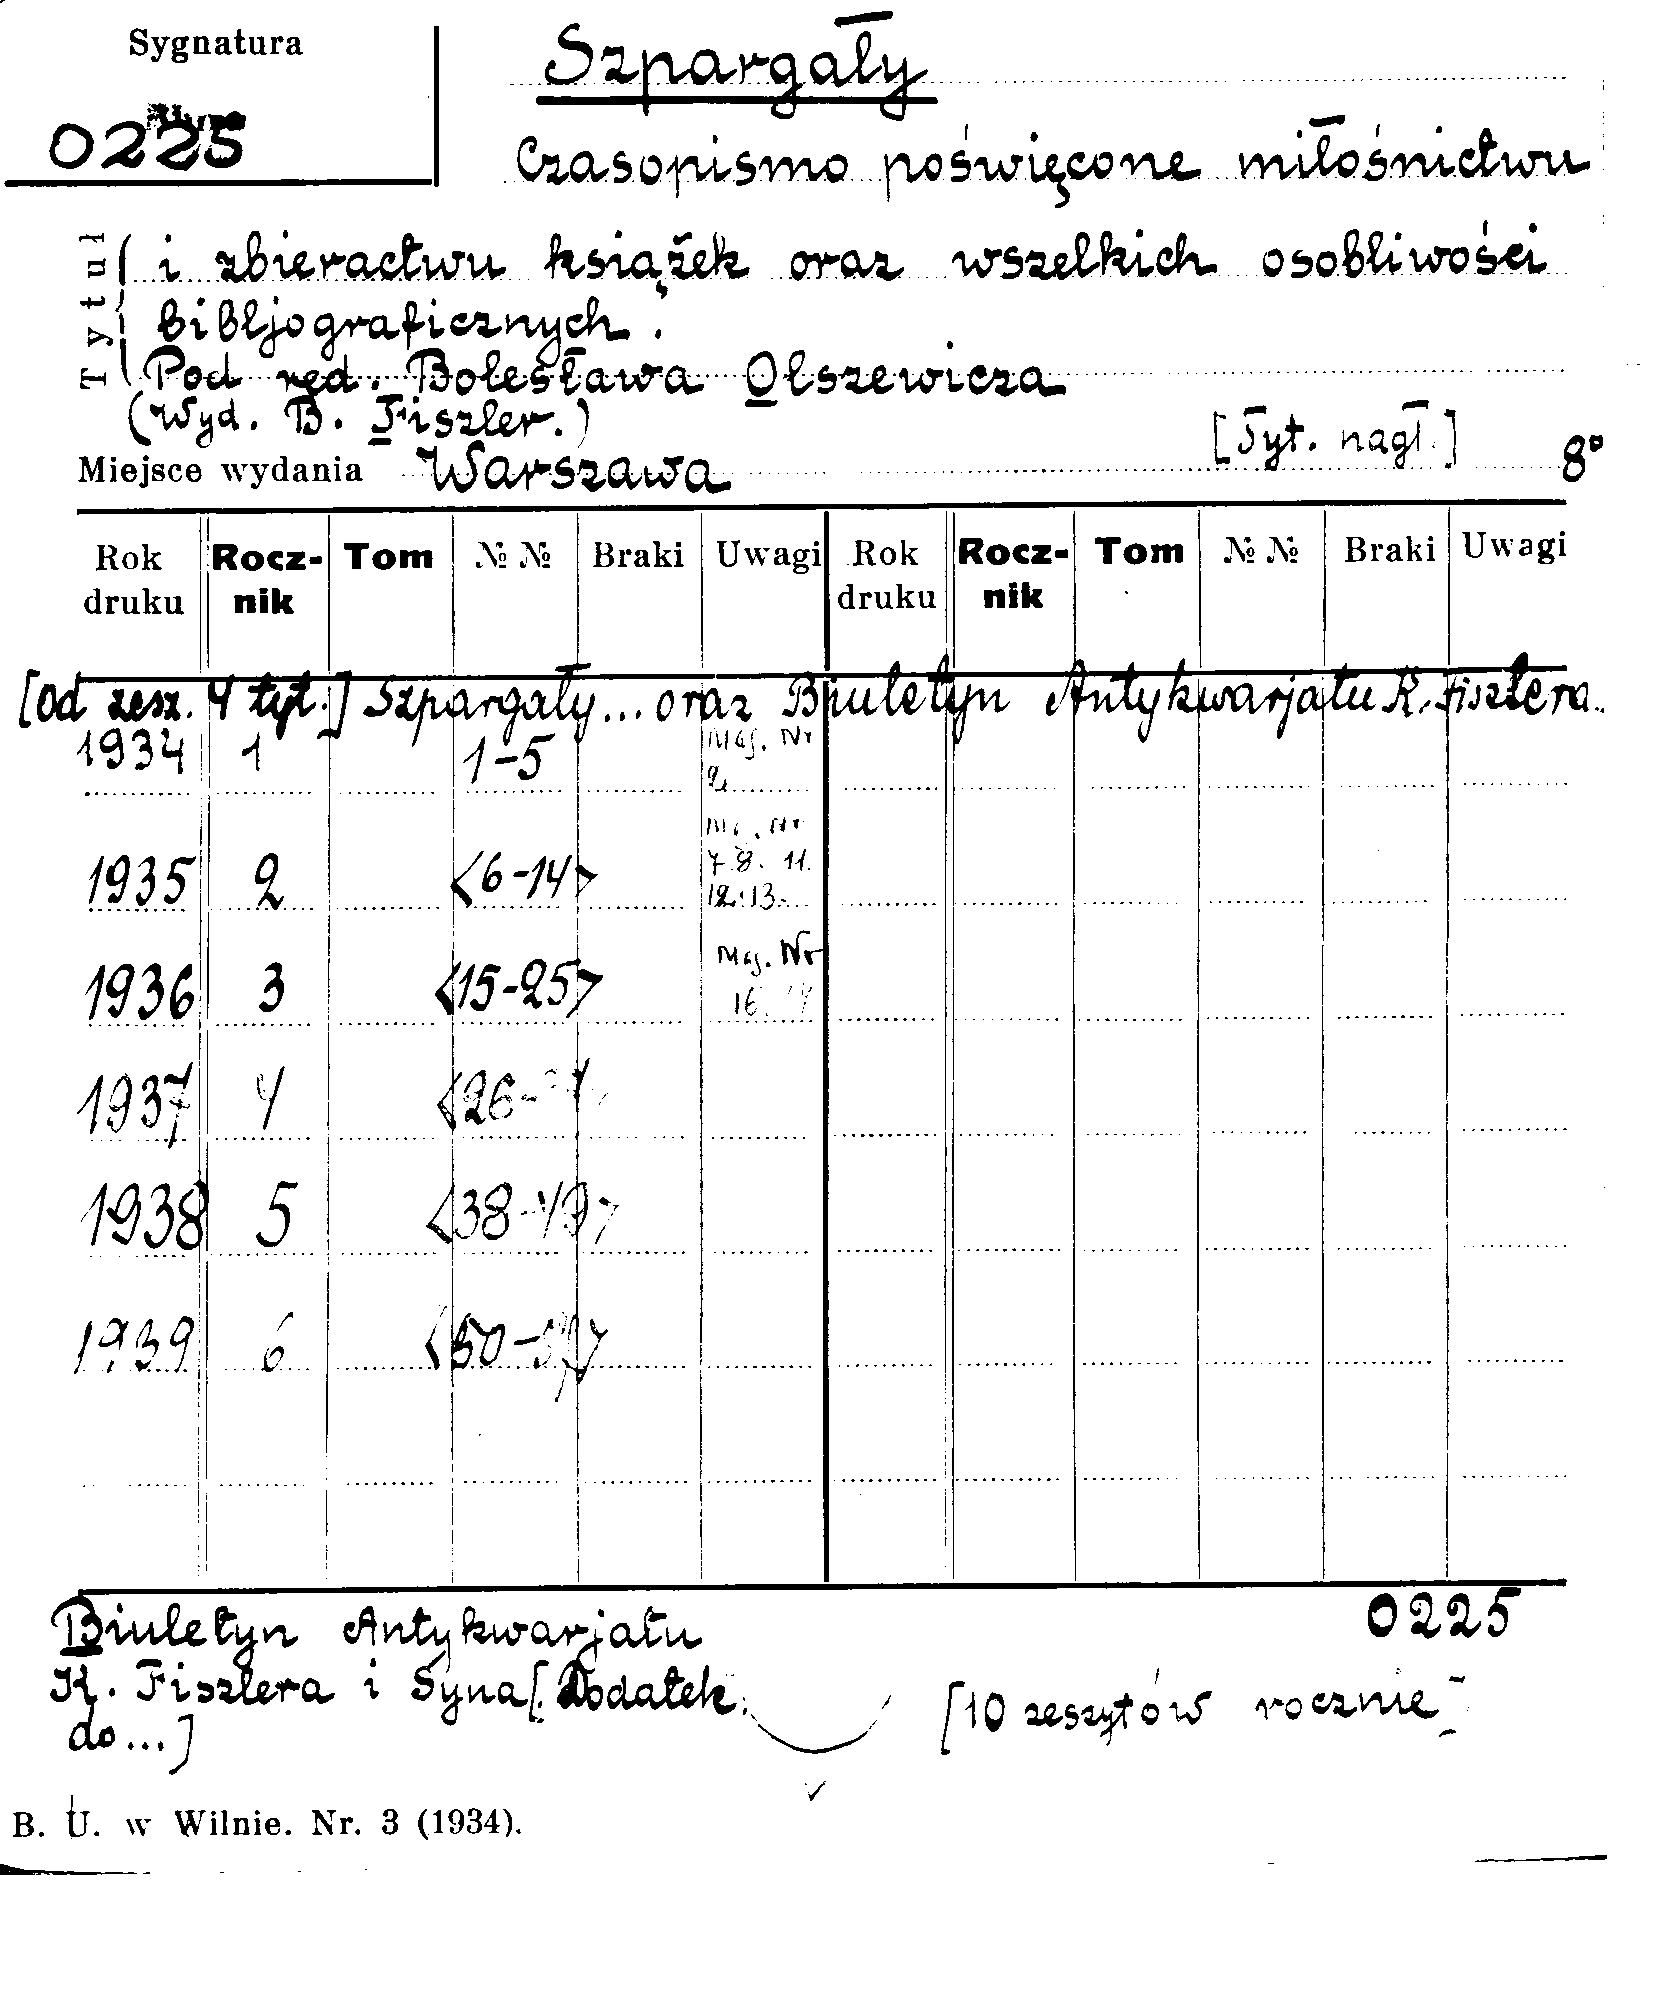 Sygnatura
0225
Szpargały
Czasopismo poświęcone miłośnictwu
i zbieractwu książek oraz wszelkich osobliwości
bibljograficznych.
Pod red. Bolesława Olszewicza
(Wyd. B. Fiszler.)
[Tyt. nagł.] 8°
Tytuł
Miejsce wydania Warszawa
Rok druku Rocz-nik Tom №№ Braki Uwagi Rok druku Rocz-nik Tom №№ Braki Uwagi
[Od zesz. 4 tyt.] Szpargały... oraz Biuletyn Antykwarjatu K. Fiszlera..
1934 1 1-5 Mag. Nr 2
1935 2 <6-14> Nr 7. 8. 11. 12. 13.
1936 3 <15-25> Mag. Nr 16.
1937 4 <26-
1938 5 <38-49>
1939 6 <50-
0225
Biuletyn Antykwarjatu
K. Fiszlera i Syna [Dodatek
do...]
[10 zeszytów rocznie]
B. U. w Wilnie. Nr. 3 (1934).